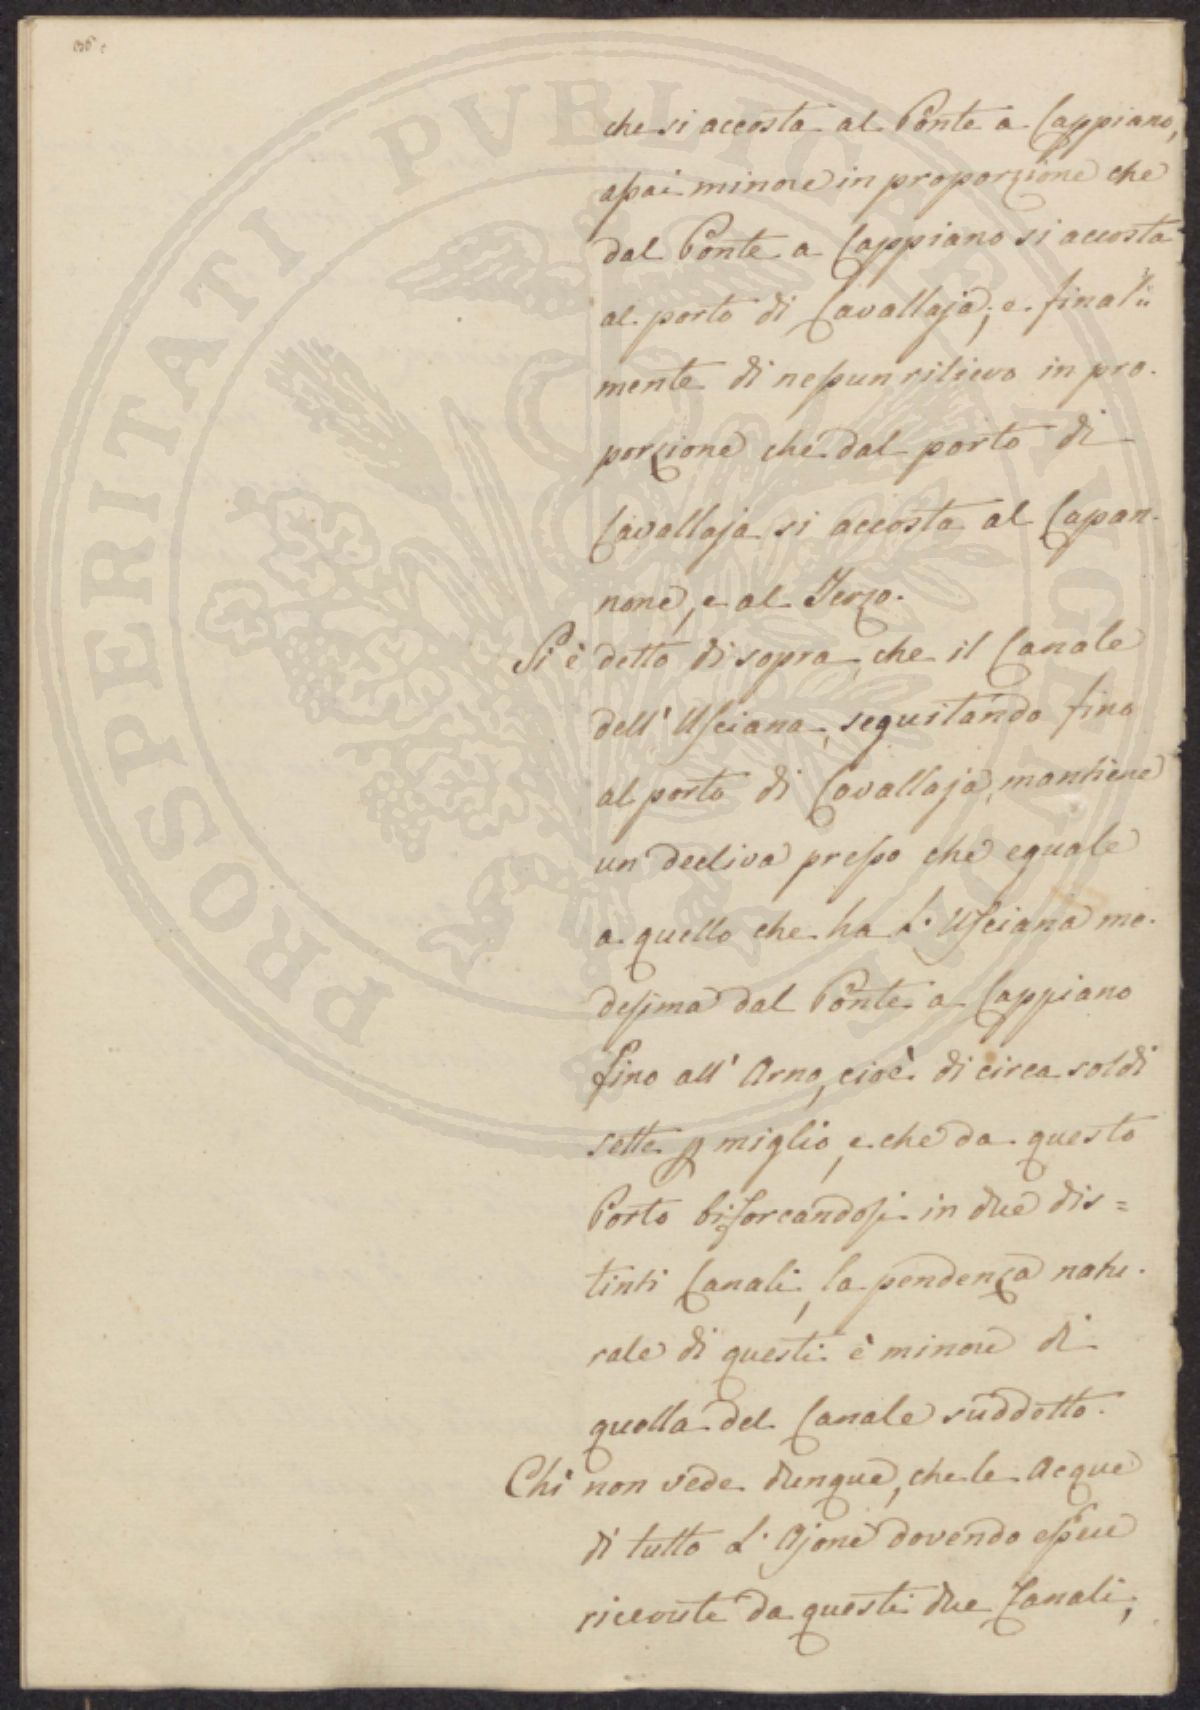 che si accosta al Ponte a Cappiano,
assai minore in proporzione che
dal Ponte a Cappiano si accosta
al porto di Cavallaja; e final=
mente di nessun rilievo in pro-
porzione che dal porto di
Cavallaja si accosta al Capan-
none, e al Terzo.
Si è detto di sopra, che il Canale
dell' Usciana, seguitando fino
al porto di Cavallaja, mantiene
un declive presso che eguale
a quello che ha L' Usciana me-
desima dal Ponte a Cappiano
fino all' Arno, cioè di circa soldi
sette p miglio, e che da questo
Porto biforcandosi in due dis=
tinti Canali, la pendenza natu-
rale di questi è minore di
quella del Canale suddetto.
Chi non vede dunque, che le Acque
di tutto L' Ajone dovendo essere
ricevute da questi due Canali,
PROSPERITATI PVBLICAE AVGENDAE